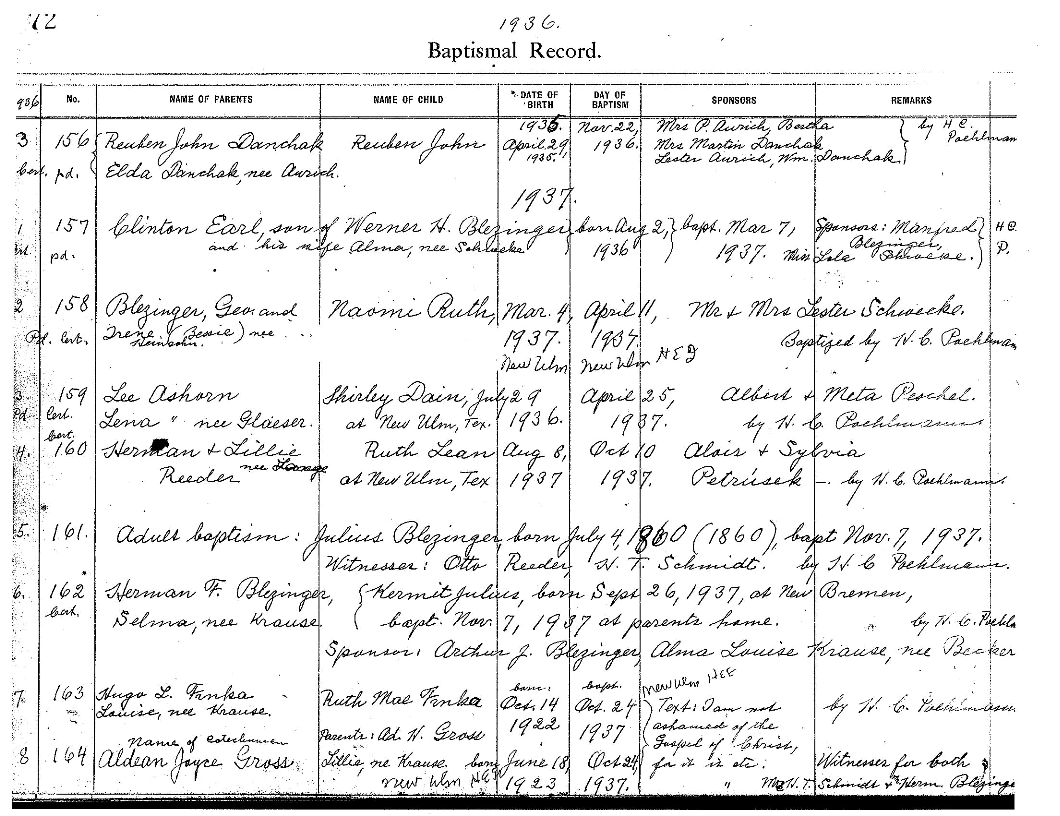 72
1936.
Baptismal Record.
936 No. NAME OF PARENTS NAME OF CHILD DATE OF BIRTH DAY OF BAPTISM SPONSORS REMARKS
3 156 Reuben John Danchak Reuben John 1935. April 29, 1935. Nov. 22, 1936. Mrs P. Aurich, Bertha
Mrs Martin Danchak
Lester Aurich, Wm. Danchak by H C. Poehlman
Cert. pd. Elda Danchak, nee Aurich.
1937.
1 157 Clinton Earl, son of Werner H. Blezinger, born Aug 2, 1936 bapt. Mar 7, 1937. Sponsors: Manfred Blezinger, H C. P.
pd. and his wife Alma, nee Miss Lola
2 158 Blezinger, Geo. and Naomi Ruth, Mar. 4, April 11, Mr & Mrs Lester Schwecke.
Pd. Cert. Irene (Bessie) nee 1937. 1937. Baptized by H. C. Poehlman
Heinsohn.
New Ulm New Ulm
159 Lee Ashorn Shirley Dain, July 29 April 25, Albert & Meta Peschel.
Pd. Cert. Lena " nee Glaeser. at New Ulm, Tex. 1936. 1937. by H. C. Poehlmann
Cert.
4. 160 Herman & Lillie Ruth Lean Aug 8, Oct 10 Alois & Sylvia
Reeder nee Lange at New Ulm, Tex 1937 1937. Petrusek - by H. C. Poehlmann.
5. 161. Adult baptism: Julius Blezinger, born July 4, 1860 (1860), bapt Nov. 7, 1937.
Witnesses: Otto Reeder, H. T. Schmidt. by H C Poehlmann.
6. 162 Herman F. Blezinger, Kermit Julius, born Sept 26, 1937, at New Bremen,
Cert. Selma, nee Krause bapt. Nov. 7, 1937 at parents home. by H. C. Poehlm
Sponsor: Arthur J. Blezinger, Alma Louise Krause, nee Becker
7. 163 Hugo L. Frnka Ruth Mae Frnka born: Oct. 14 1922 bapt. Oct. 24 1937 New Ulm
Louise, nee Krause. Text: I am not by H. C. Poehlmann
ashamed of the
Gospel of Christ,
for it is etc.
Name of catechumen Parents: Ad. H. Gross
8 164 Aldean Joyce Gross Lillie, nee Krause. born June 18, Oct 24, Witnesses for both
New Ulm 1923 1937. " Mr H. T. Schmidt & Herm. Blezinge